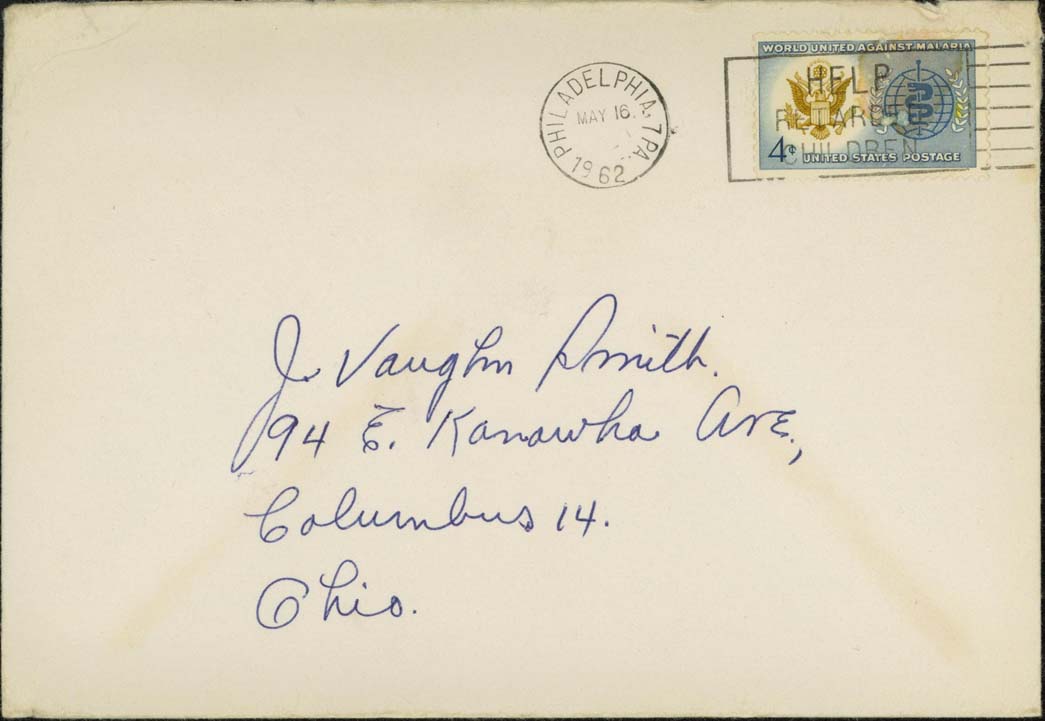 PHILADELPHIA, 7 PA
MAY 16
1962
WORLD UNITED AGAINST MALARIA
HELP
RETARDED
CHILDREN
4¢ UNITED STATES POSTAGE
J. Vaughn Smith.
94 E. Kanawha Ave.,
Columbus 14.
Ohio.